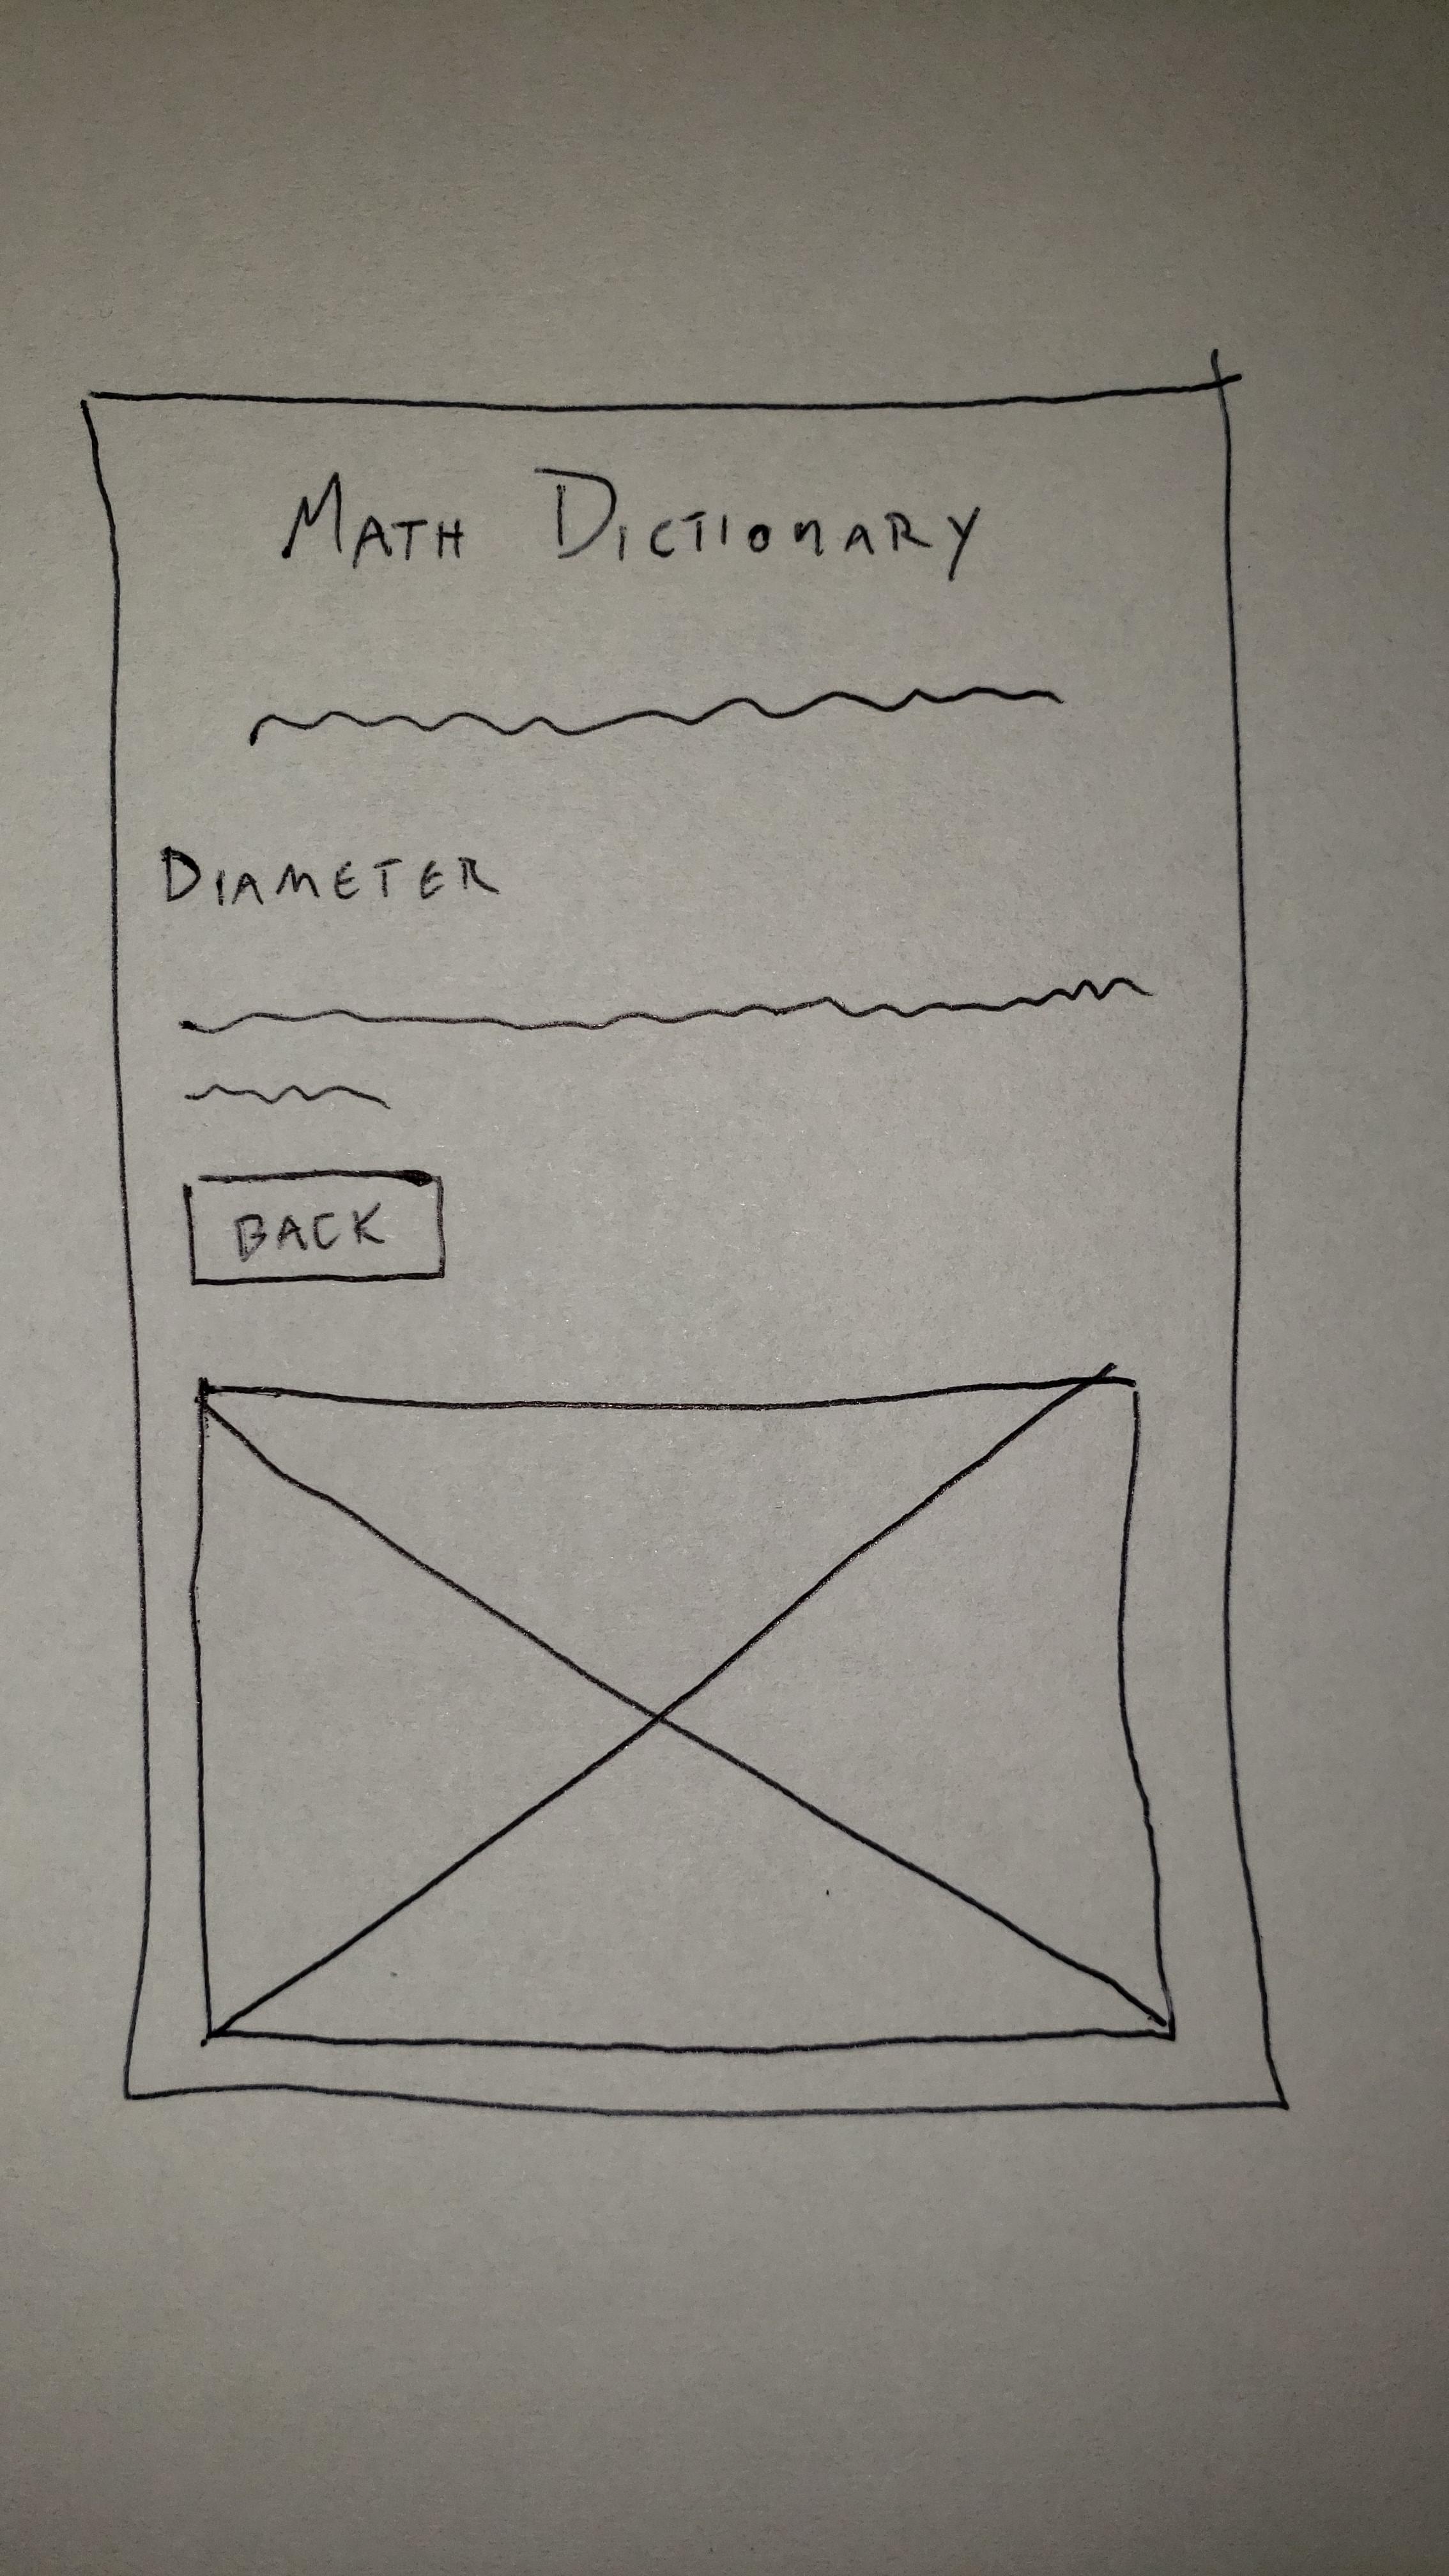 MATH DICTIONARY
DIAMETER
BACK